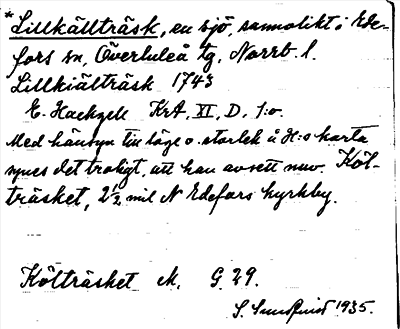 * Lillkällträsk, en sjö, sannolikt i Ede-
fors sn, Överluleå tg, Norrb. l.
Lillkiälträsk 1743
E. Hackzell KrA, XI, D, 1:o.
Med hänsyn till läge o. storlek å H:s karta
synes det troligt, att han avsett nuv. Köl-
träsket, 2½ mil N Edefors kyrkby.
Költräsket M. G. 29.
S. Sundquist 1935.